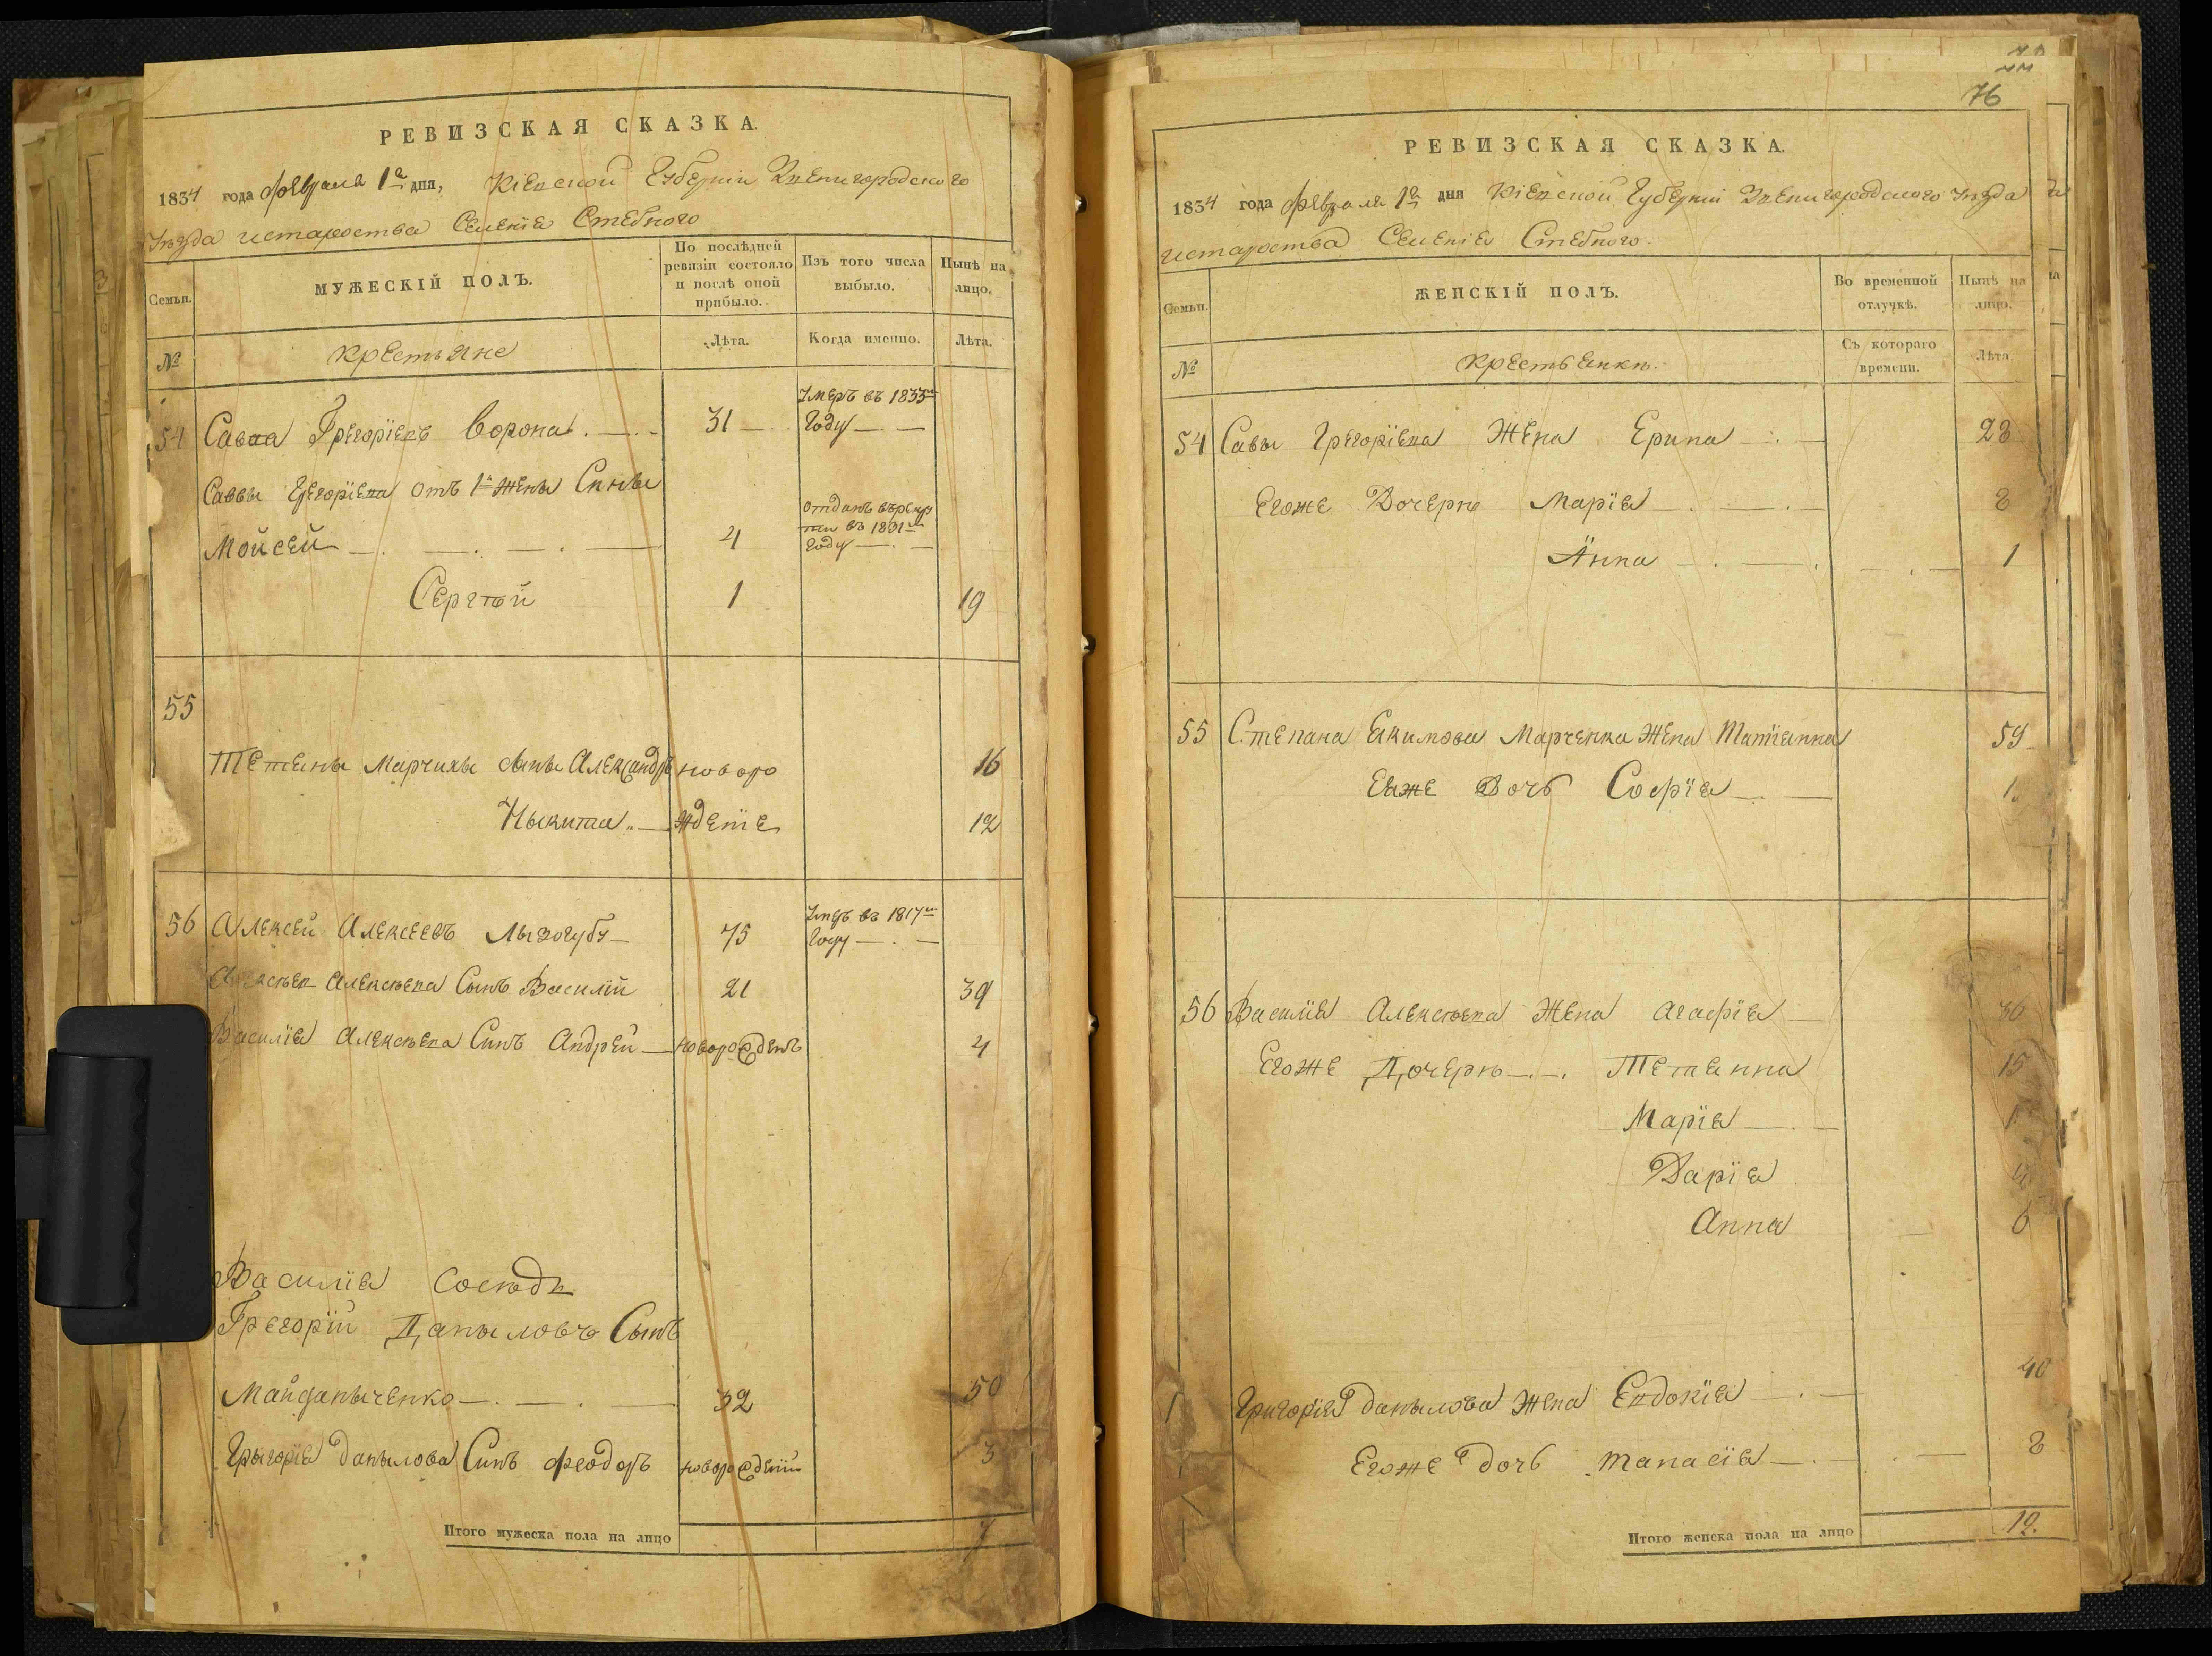 РЕВИЗСКАЯ СКАЗКА.
1834 года февраля 1го дня, Кіевской Губерніи Звенигородского
Уезда истароства Селенія Стебного
Семьи.
МУЖЕСКІЙ ПОЛЪ.
По послѣдней ревизіи состояло и послѣ оной прибыло.
Изъ того числа выбыло.
Нынѣ на лицо.
№
крестьяне
Лѣта.
Когда именно.
Лѣта.
54 Савва Грегоріевъ Ворона 31 Умеръ въ 1833м
Году
Саввы Грегоріева отъ 1й жены Сины
Мойсей 4 отданъ върекру
ти въ 1831м
Году
Сергѣй 1 19
55
Тетяны Марчихы сыны Александръ новоро 16
Ныкита ждение 12
56 Алексей Алексеевъ Лызогубъ 75 Умеръ въ 1817м
Году
Алексѣя Алексѣева Сынъ Василій 21 39
Василія Алексѣева Синъ Андрей новорожденъ 4
Василія Сосѣдъ
Грегорій Даныловъ Сынъ
Майданыченко 32 50
Грыгорія Данылова Синъ Феодоръ новорожденій 3
Итого мужеска пола на лицо 7
76
РЕВИЗСКАЯ СКАЗКА.
1834 года февраля 1го дня Кіевской Губерніи Звенигородского Уезда
истароства Селенія Стебного.
Семьи.
ЖЕНСКІЙ ПОЛЪ.
Во временной отлучкѣ.
Нынѣ на лицо.
№
крестьянки.
Съ котораго времени.
Лѣта.
54 Савы Грегоріева Жена Ерина 28
Егоже Дочерѣ Марія 8
Анна 1
55 Степана Екимова Марченка Жена Татіанна 59
Еяже Дочь Софія 1
56 Василія Алексѣева Жена Агафія 36
Егоже Дочерѣ Тетянна 15
Марія
Дарія
Анна 6
Григорія Данылова Жена Евдокія 40
Егоже дочь Танасія 8
Итого женска пола на лицо 12.